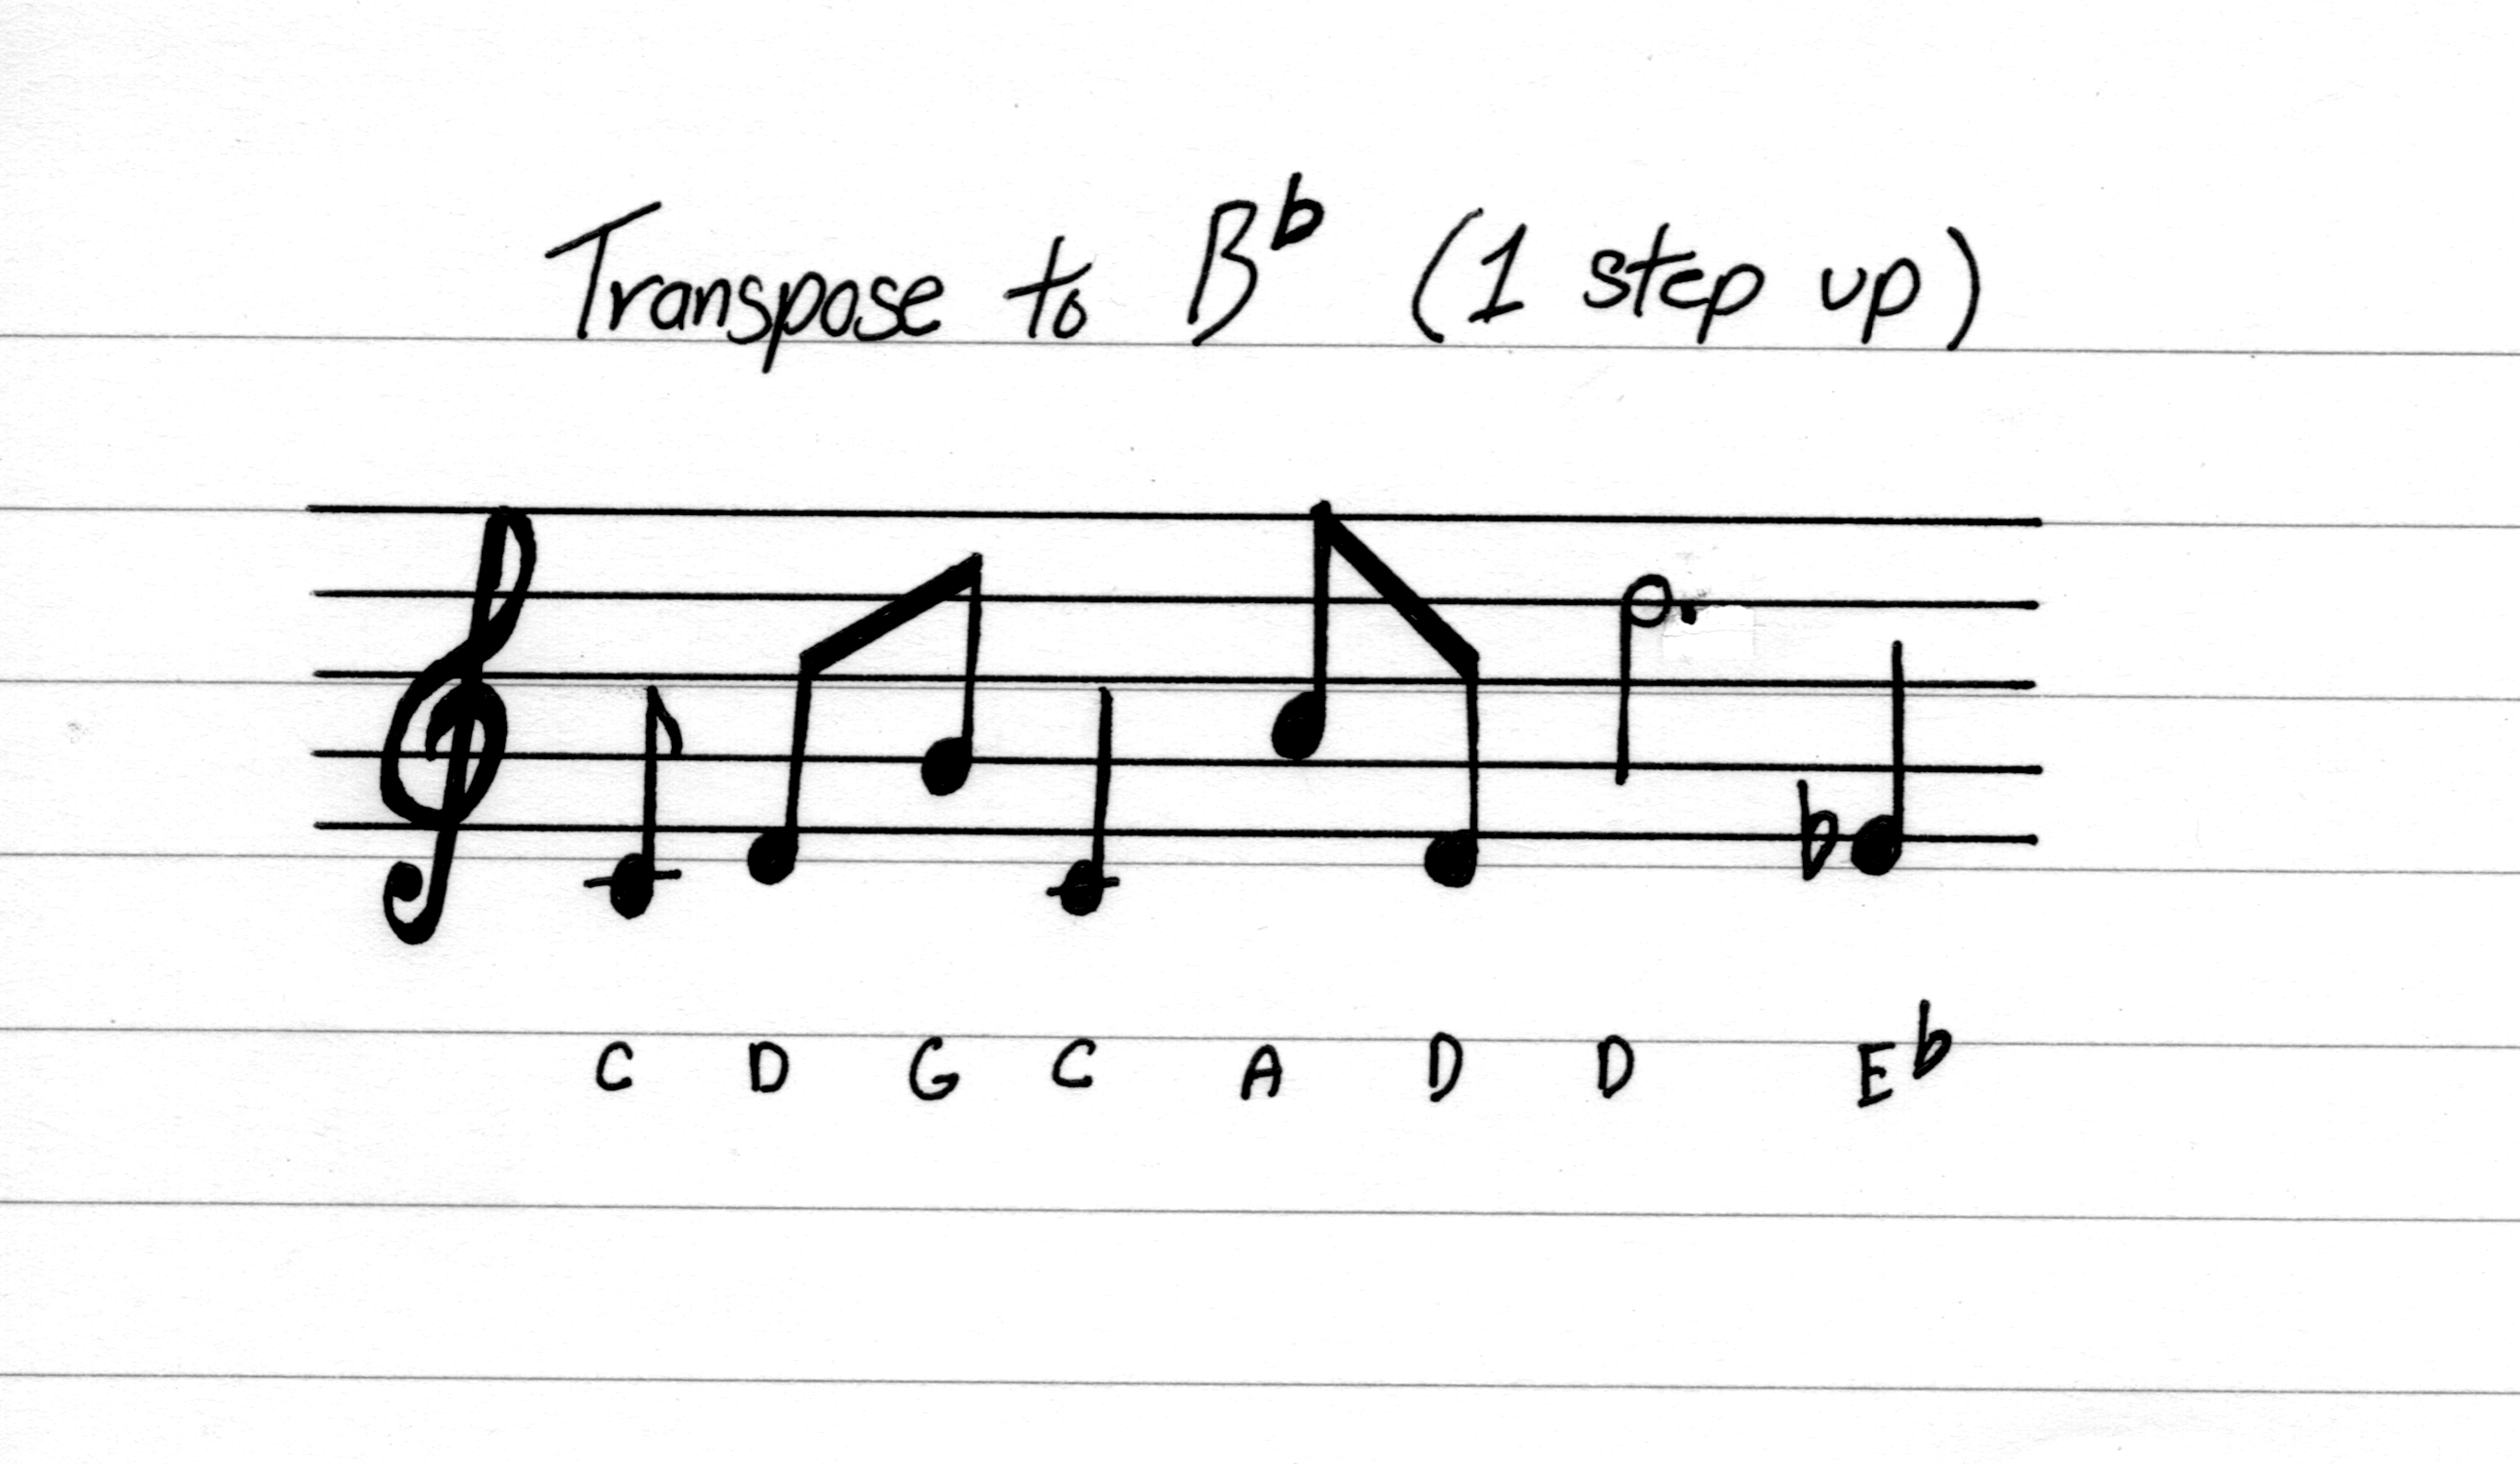 Transpose to B♭ (1 step up)
C D G C A D D E♭